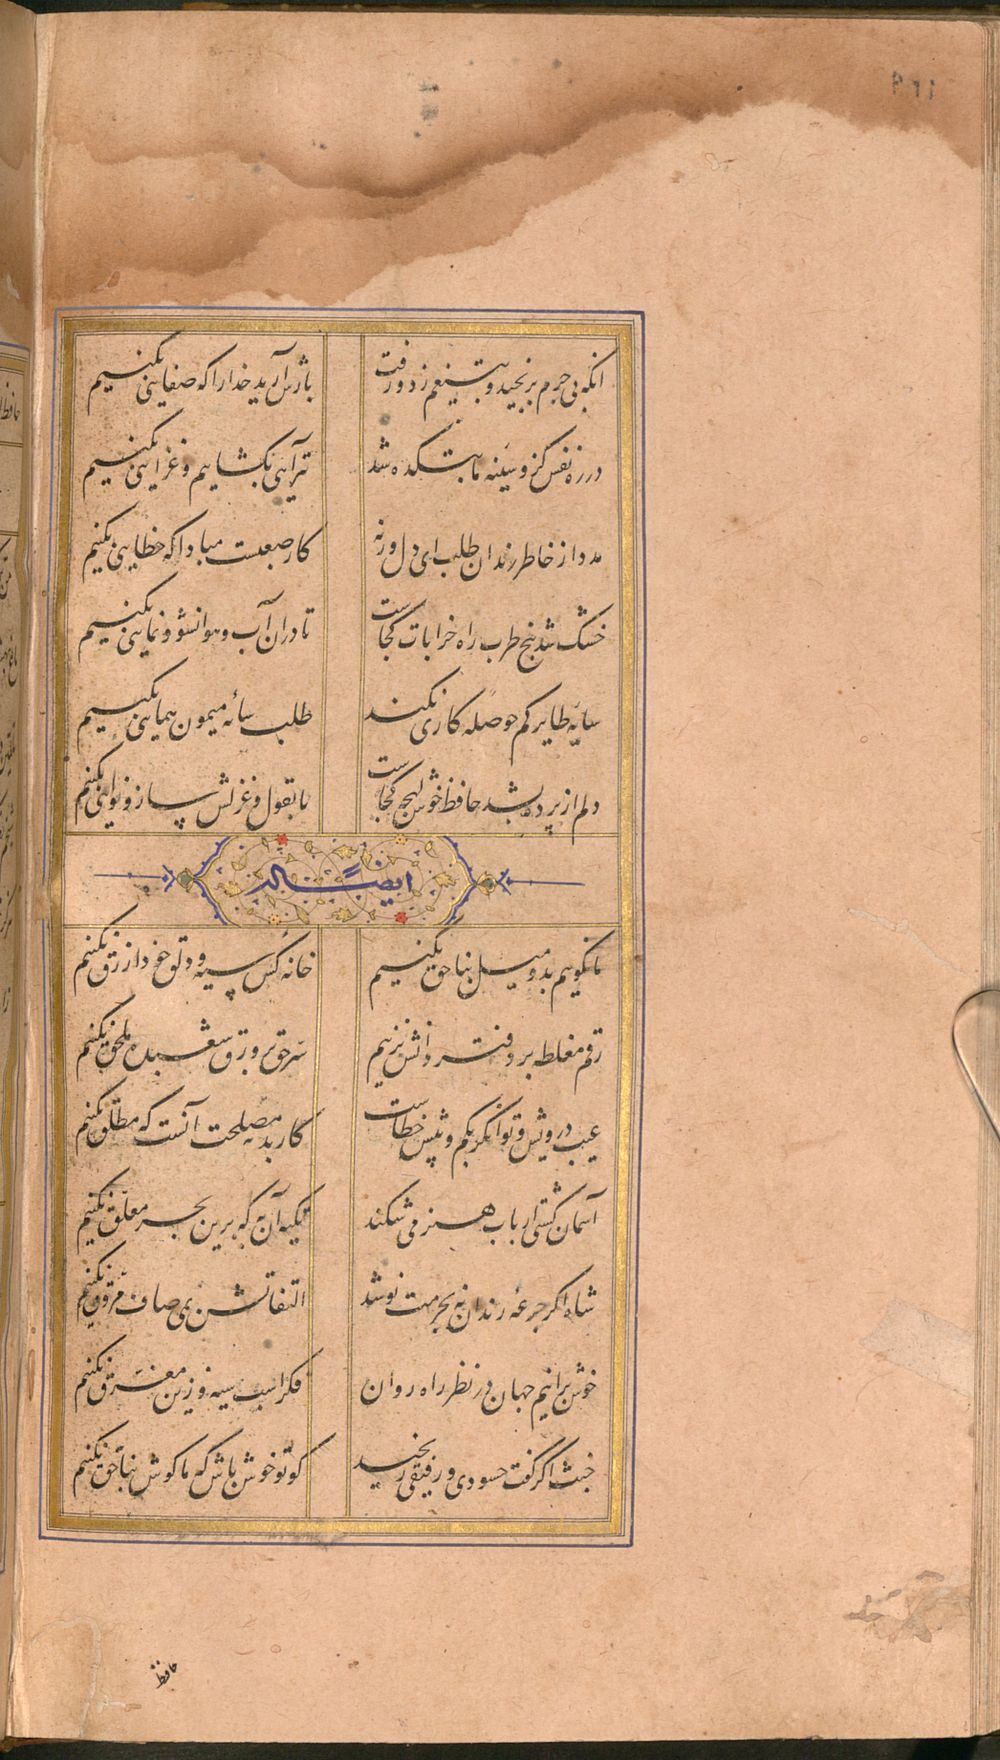 انکه بی جرم برنجید و بتیغم زد و رفت بازش آرید خدارا که صفایی بکنیم
در ره نفس کزو سینه ما بتکده شد تیر آهی بکشاییم و غزایی بکنیم
مدد از خاطر رندان طلب ای دل ورنه کار صعبست مبادا که خطایی بکنیم
خشک شد بیخ طرب راه خرابات کجاست تا دران آب و هوا نشو و نمایی بکنیم
سایه طایر کم حوصله کاری نکند طلب سایه میمون همایی بکنیم
دلم از پرده بشد حافظ خوش لهجه کجاست تا بقول و غزلش ساز و نوایی بکنیم
ایضا له
ما نکوییم بد و میل بناحق نکنیم خانه کس سیه و دلق خود ازرق نکنیم
رقم مغلطه بر دفتر دانش نزنیم سر حق بر ورق شعبده ملحق نکنیم
عیب درویش و توانکر بکم و بیش خطاست کار بد مصلحت آنست که مطلق نکنیم
آسمان کشتی ارباب هنر می شکند تکیه آن به که برین بحر معلق نکنیم
شاه اکر جرعه رندان نه بحرمت نوشد التفاتش بمی صاف مروق نکنیم
خوش برانیم جهان در نظر راه روان فکر اسب سیه و زین مغرق نکنیم
خبث اکر کفت حسودی و رفیقی رنجید کو تو خوش باش که ما کوش بناحق نکنیم
حافظ